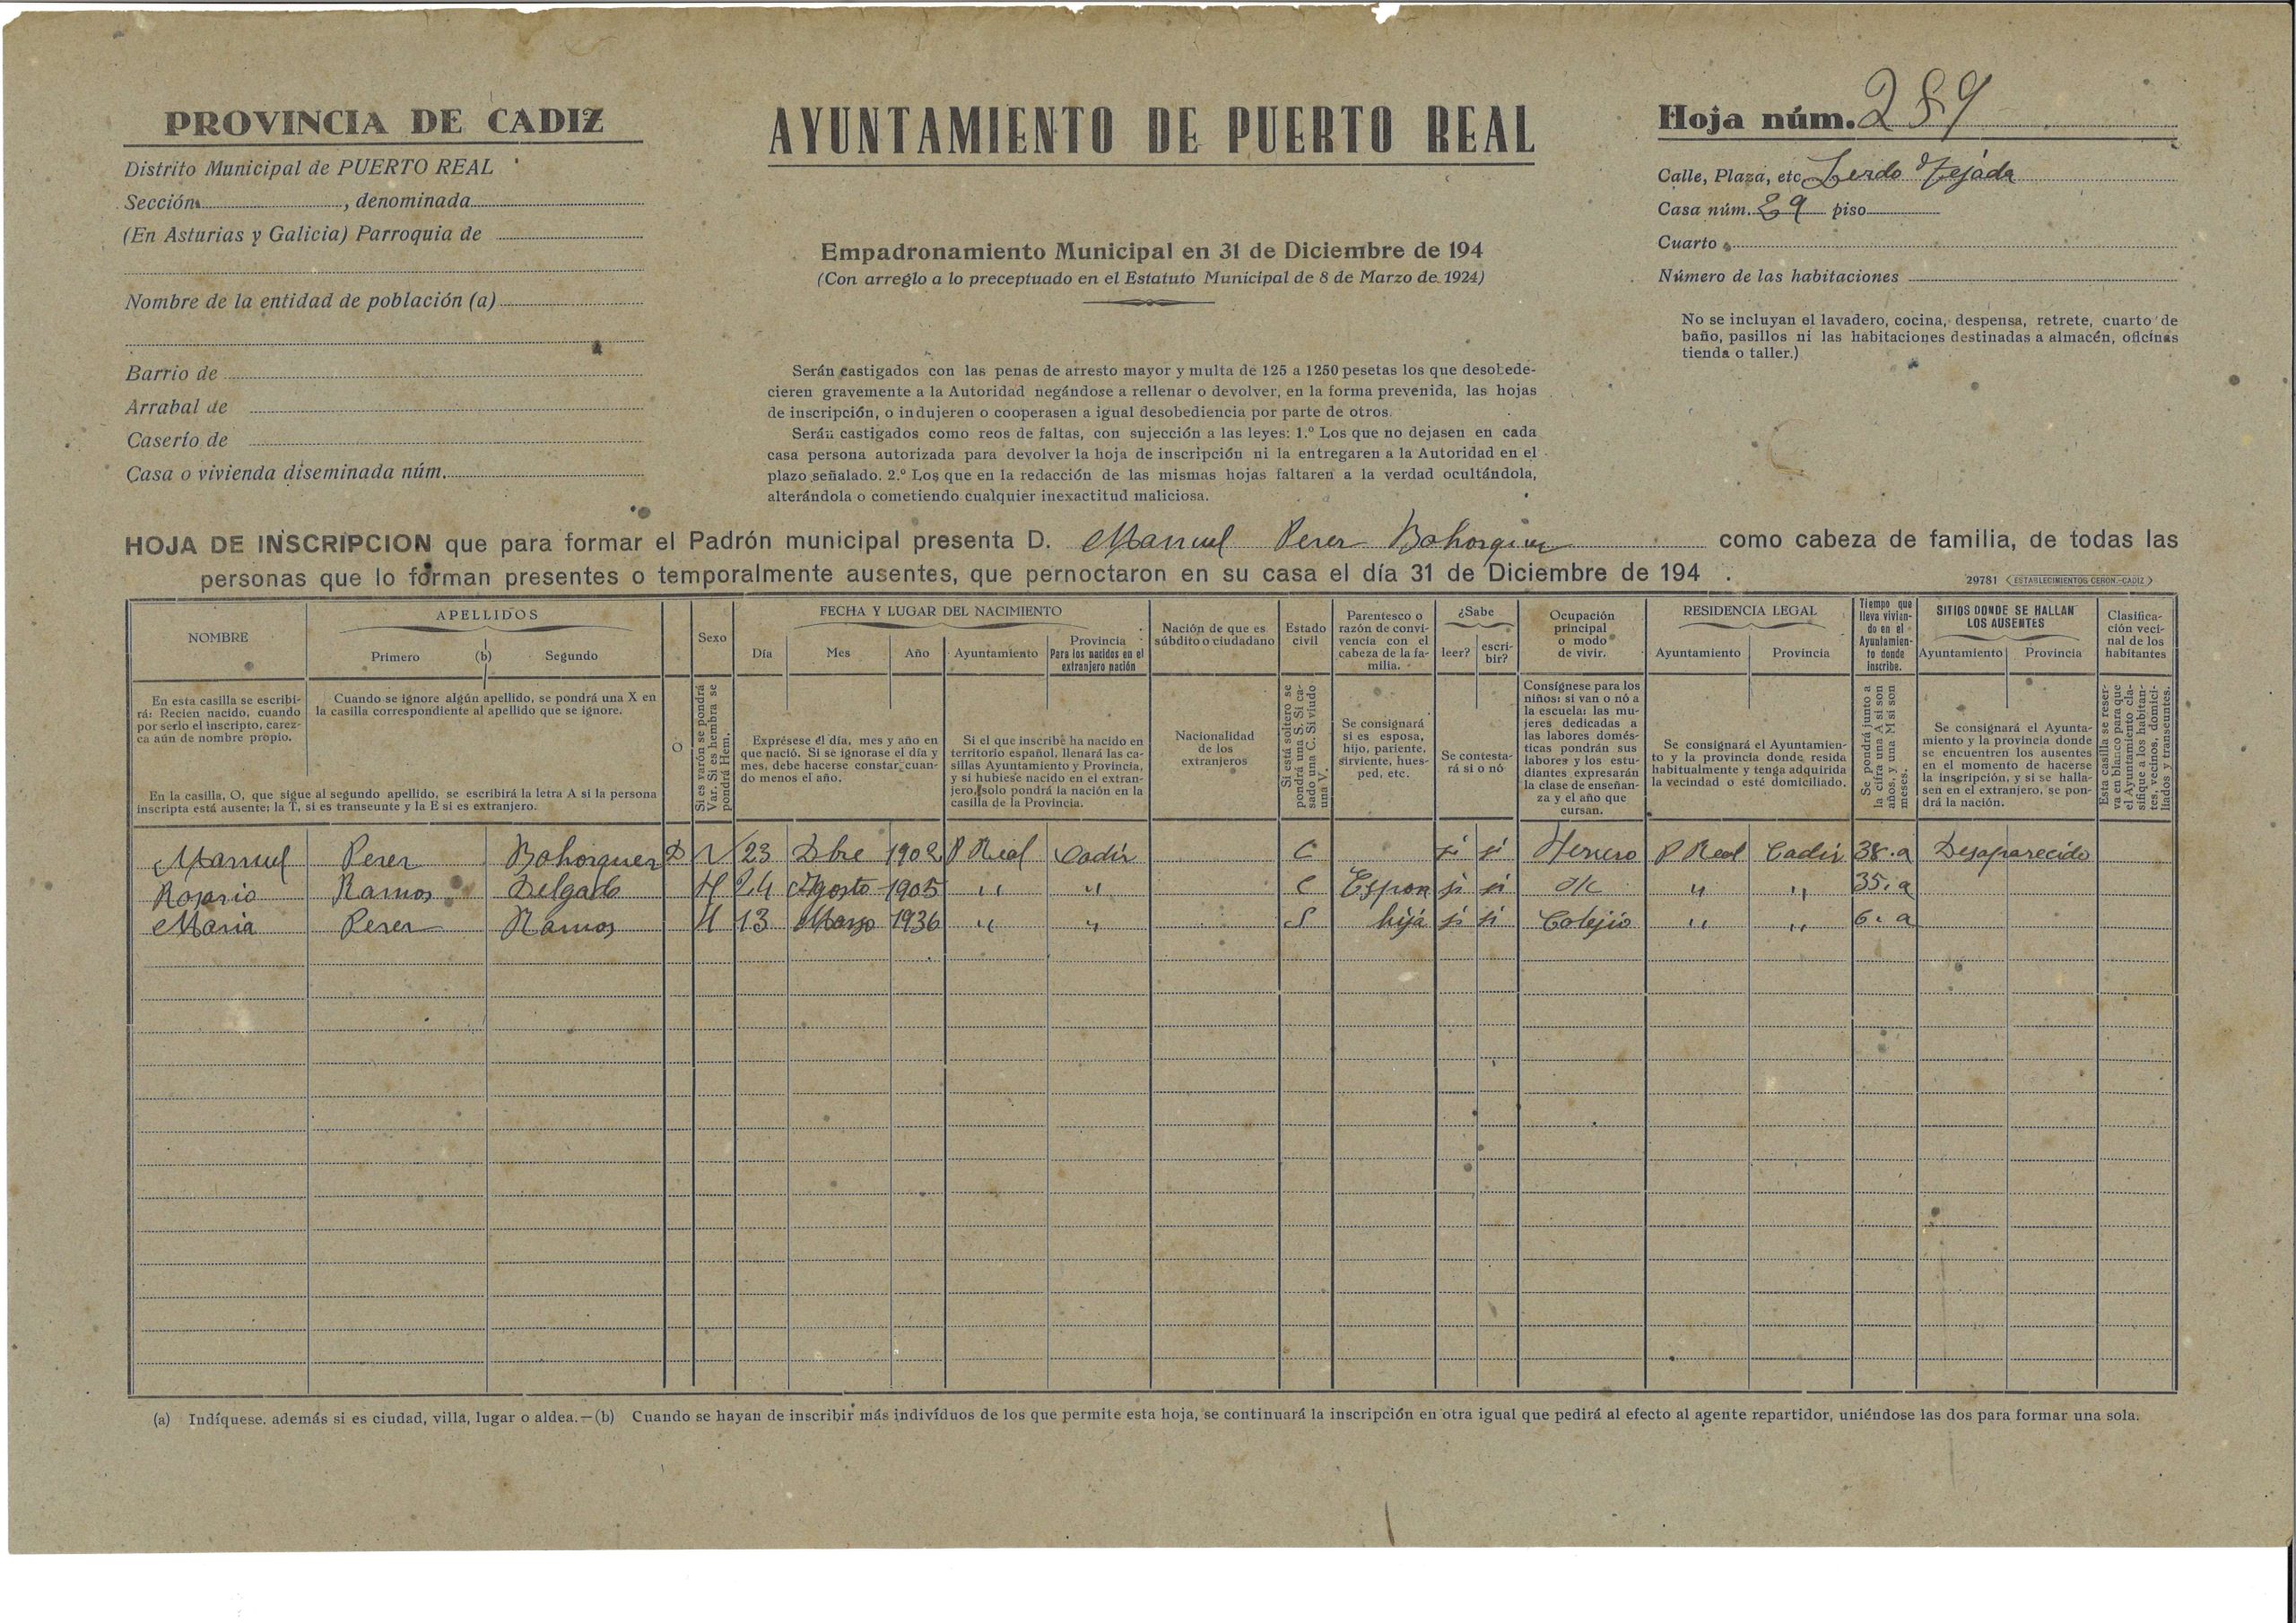 PROVINCIA DE CADIZ
Distrito Municipal de PUERTO REAL
Sección, denominada
(En Asturias y Galicia) Parroquia de
Nombre de la entidad de población (a)
Barrio de
Arrabal de
Caserío de
Casa o vivienda diseminada núm.
AYUNTAMIENTO DE PUERTO REAL
Empadronamiento Municipal en 31 de Diciembre de 194
(Con arreglo a lo preceptuado en el Estatuto Municipal de 8 de Marzo de 1924)
Serán castigados con las penas de arresto mayor y multa de 125 a 1250 pesetas los que desobede-
cieren gravemente a la Autoridad negándose a rellenar o devolver, en la forma prevenida, las hojas
de inscripción, o indujeren o cooperasen a igual desobediencia por parte de otros.
Serán castigados como reos de faltas, con sujección a las leyes: 1.º Los que no dejasen en cada
casa persona autorizada para devolver la hoja de inscripción ni la entregaren a la Autoridad en el
plazo señalado. 2.º Los que en la redacción de las mismas hojas faltaren a la verdad ocultándola,
alterándola o cometiendo cualquier inexactitud maliciosa.
Hoja núm. 289
Calle, Plaza, etc Lerdo d Tejada
Casa núm. 29 piso
Cuarto
Número de las habitaciones
No se incluyan el lavadero, cocina, despensa, retrete, cuarto de
baño, pasillos ni las habitaciones destinadas a almacén, oficinas
tienda o taller.)
HOJA DE INSCRIPCION que para formar el Padrón municipal presenta D. Manuel Perez Bohorquez como cabeza de familia, de todas las
personas que lo forman presentes o temporalmente ausentes, que pernoctaron en su casa el día 31 de Diciembre de 194 .
29781 (ESTABLECIMIENTOS CERON.-CADIZ)
NOMBRE
APELLIDOS
Primero (b) Segundo
Sexo
FECHA Y LUGAR DEL NACIMIENTO
Día Mes Año Ayuntamiento
Provincia
Para los nacidos en el
extranjero nación
Nación de que es
súbdito o ciudadano
Estado
civil
Parentesco o
razón de convi-
vencia con el
cabeza de la fa-
milia.
¿Sabe
leer? escri-
bir?
Ocupación
principal
o modo
de vivir.
RESIDENCIA LEGAL
Ayuntamiento Provincia
Tiempo que
lleva vivien-
do en el
Ayuntamien-
to donde
inscribe.
SITIOS DONDE SE HALLAN
LOS AUSENTES
Ayuntamiento Provincia
Clasifica-
ción veci-
nal de los
habitantes
En esta casilla se escribi-
rá: Recien nacido, cuando
por serlo el inscripto, carez-
ca aún de nombre propio.
Cuando se ignore algún apellido, se pondrá una X en
la casilla correspondiente al apellido que se ignore.
En la casilla, O, que sigue al segundo apellido, se escribirá la letra A si la persona
inscripta está ausente; la T, si es transeunte y la E si es extranjero.
O
Si es varón se pondrá
Var. Si es hembra se
pondrá Hem.
Exprésese el día, mes y año en
que nació. Si se ignorase el día y
mes, debe hacerse constar, cuan-
do menos el año.
Si el que inscribe ha nacido en
territorio español, llenará las ca-
sillas Ayuntamiento y Provincia,
y si hubiese nacido en el extran-
jero, solo pondrá la nación en la
casilla de la Provincia.
Nacionalidad
de los
extranjeros
Si está soltero se
pondrá una S. Si ca-
sado una C. Si viudo
una V.
Se consignará
si es esposa,
hijo, pariente,
sirviente, hues-
ped, etc.
Se contesta-
rá si o nó
Consígnese para los
niños: si van o nó a
la escuela: las mu-
jeres dedicadas a
las labores domés-
ticas pondrán sus
labores y los estu-
diantes expresarán
la clase de enseñan-
za y el año que
cursan.
Se consignará el Ayuntamien-
to y la provincia donde resida
habitualmente y tenga adquirida
la vecindad o esté domiciliado.
Se pondrá junto a
la cifra una A si son
años, y una M si son
meses.
Se consignará el Ayunta-
miento y la provincia donde
se encuentren los ausentes
en el momento de hacerse
la inscripción, y si se halla-
sen en el extranjero, se pon-
drá la nación.
Esta casilla se reser-
va en blanco para que
el Ayuntamiento cla-
sifique a los habitan-
tes, vecinos, domici-
liados y transeuntes.
Manuel Perez Bohorquez D V 23 Dbre 1902 P Real Cadiz C si si Herrero P Real Cadiz 38.a Desaparecido
Rosario Ramos Delgado H 24 Agosto 1905 " " C Esposa si si " " 35.a
Maria Perez Ramos H 13 Marzo 1936 " " S hija si si Colejio " " 6.a
(a) Indíquese. además si es ciudad, villa, lugar o aldea.—(b) Cuando se hayan de inscribir más indivíduos de los que permite esta hoja, se continuará la inscripción en otra igual que pedirá al efecto al agente repartidor, uniéndose las dos para formar una sola.